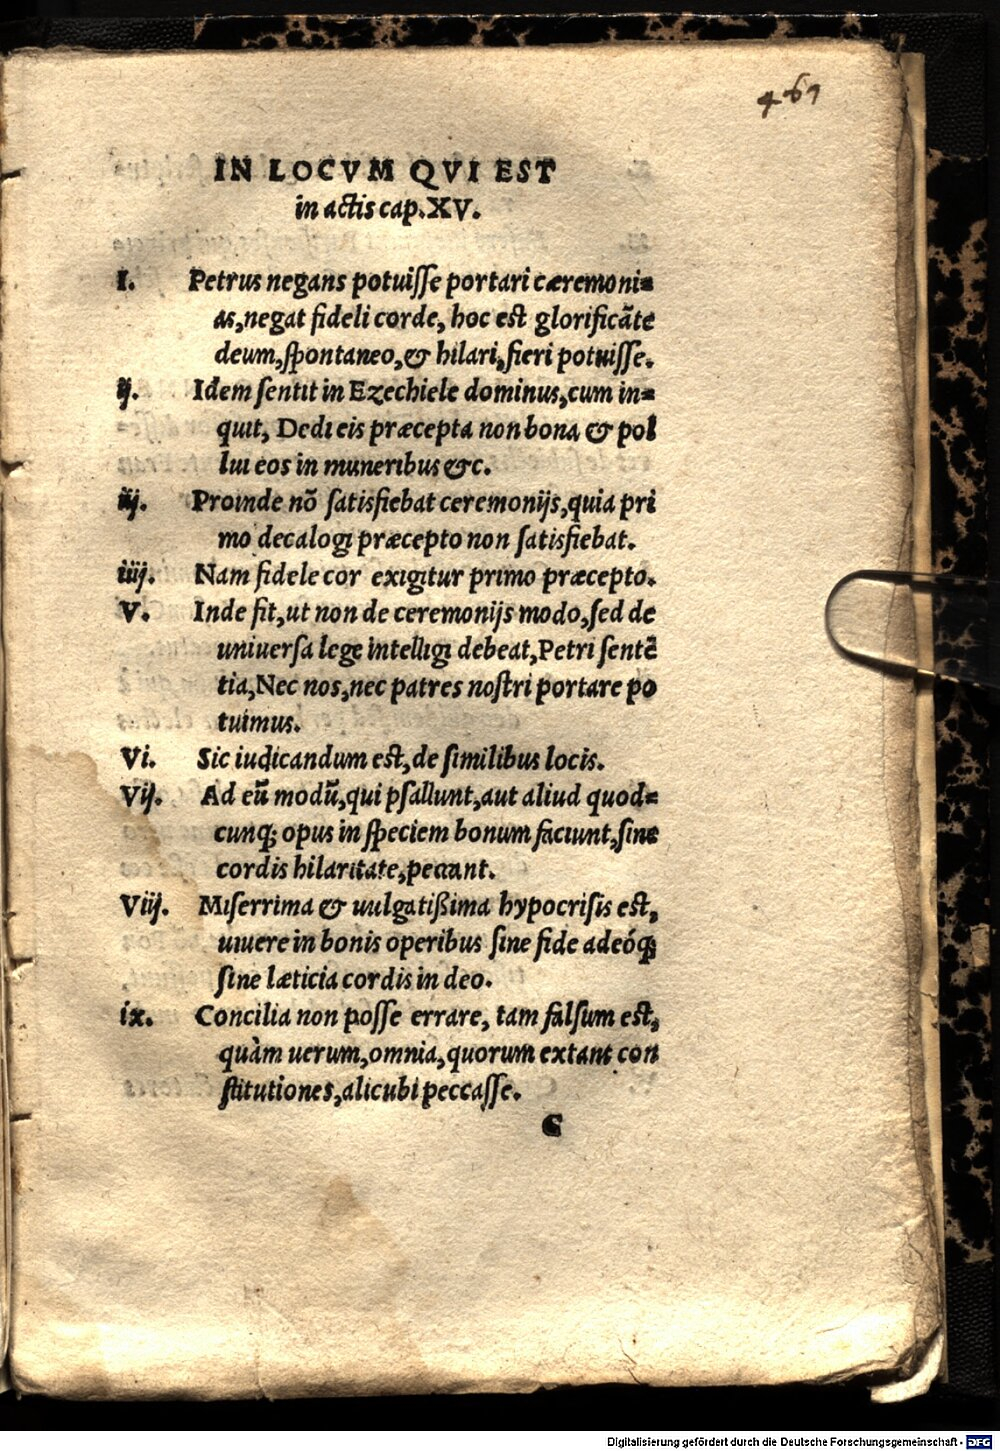 461
IN LOCVM QVI EST
in actis cap.XV.
I. Petrus negans potuiſſe portari cæremoni=
as,negat fideli corde, hoc est glorificãte
deum,ſpontaneo,& hilari,fieri potuiſſe.
ij. Idem ſentit in Ezechiele dominus,cum in=
quit, Dedi eis præcepta non bona & pol
lui eos in muneribus &c.
iij. Proinde nõ ſatisfiebat ceremonijs,quia pri
mo decalogi præcepto non ſatisfiebat.
iiij. Nam fidele cor exigitur primo præcepto.
V. Inde fit,ut non de ceremonijs modo,ſed de
uniuerſa lege intelligi debeat,Petri ſentẽ
tia,Nec nos,nec patres noſtri portare po
tuimus.
Vi. Sic iudicandum est,de ſimilibus locis.
Vij. Ad eũ modũ,qui pſallunt,aut aliud quod=
cunq; opus in ſpeciem bonum faciunt,ſine
cordis hilaritate,peccant.
Viij. Miſerrima & uulgatißima hypocriſis est,
uiuere in bonis operibus ſine fide adeóq;
ſine læticia cordis in deo.
ix. Concilia non poſſe errare, tam falſum est,
quàm uerum,omnia,quorum extant con
ſtitutiones,alicubi peccaſſe.
C
Digitalisierung gefördert durch die Deutsche Forschungsgemeinschaft - DFG